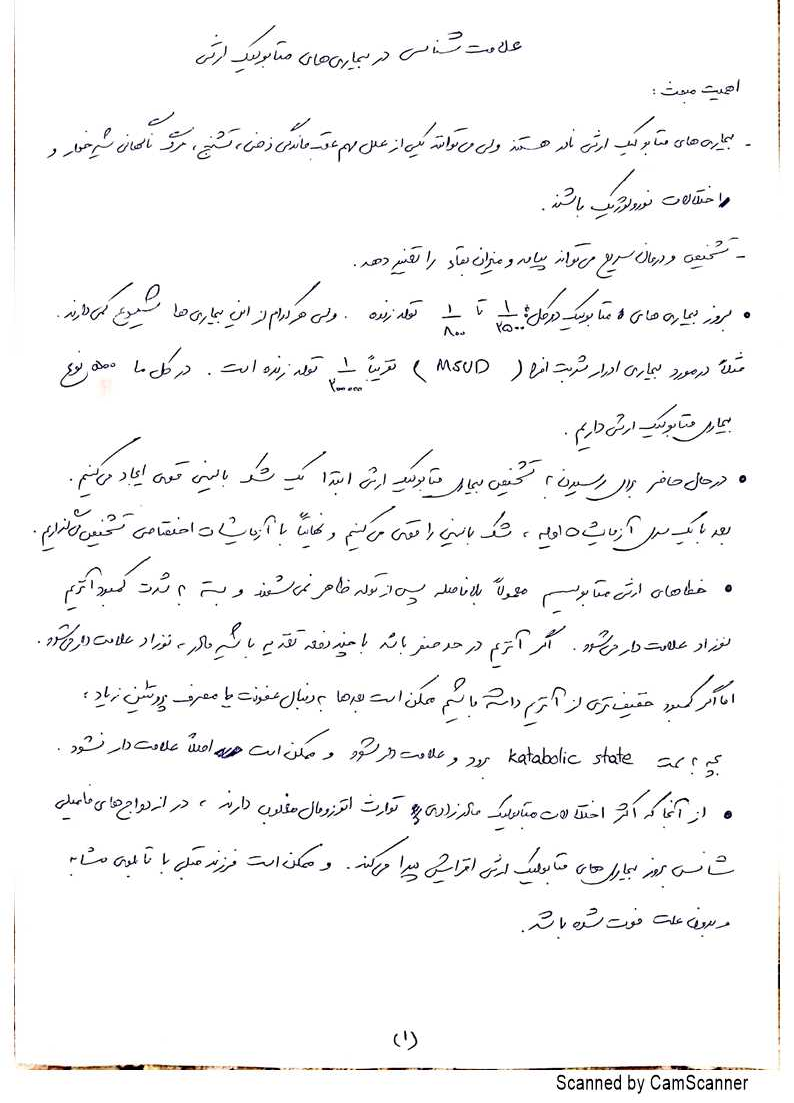 علامت شناسی در بیماری‌های متابولیک ارثی
اهمیت مبحث :
- بیماری‌های متابولیک ارثی نادر هستند ولی می‌توانند یکی از علل مهم عقب‌ماندگی ذهنی، تشنج، مرگ ناگهانی شیرخوار و
اختلالات نورولوژیک باشند.
- تشخیص و درمان سریع می‌تواند پیامد و میزان بقاء را تغییر دهد.
• بروز بیماری های متابولیک در کل: ۱/۲۵۰۰ تا ۱/۸۰۰ تولد زنده . ولی هر کدام از این بیماری ها شیوع کمی دارند.
مثلاً در مورد بیماری ادرار شربت افرا ( MSUD ) تقریباً ۱/۲۰۰۰۰۰ تولد زنده است . در کل ما ۵۰۰ نوع
بیماری متابولیک ارثی داریم .
• در حال حاضر برای رسیدن به تشخیص بیماری متابولیک ارثی ابتدا یک شک بالینی قوی ایجاد می‌کنیم.
بعد با یک سری آزمایشات اولیه ، شک بالینی را قوی می‌کنیم و نهایتاً با آزمایشات اختصاصی تشخیص می‌گذاریم.
• خطاهای ارثی متابولیسم معمولاً بلافاصله پس از تولد ظاهر نمی‌شوند و بسته به شدت کمبود آنزیم
نوزاد علامت دار می‌شود . اگر آنزیم در حد صفر باشد با چند دفعه تغذیه با شیر مادر ، نوزاد علامت دار می‌شود.
اما اگر کمبود خفیف تری از آنزیم داشته باشیم ممکن است بعدها به دنبال عفونت یا مصرف پروتئین زیاد ،
بچه به سمت katabolic state برود و علامت دار شود و ممکن است اصلاً علامت دار نشود .
• از آنجا که اکثر اختلالات متابولیک مادرزادی توارث اتوزومال مغلوب دارند ، در ازدواج های فامیلی
شانس بروز بیماری های متابولیک ارثی افزایش پیدا می‌کند . و ممکن است فرزند قبلی با تابلوی مشابه
و بدون علت فوت شده باشد.
(۱)
Scanned by CamScanner